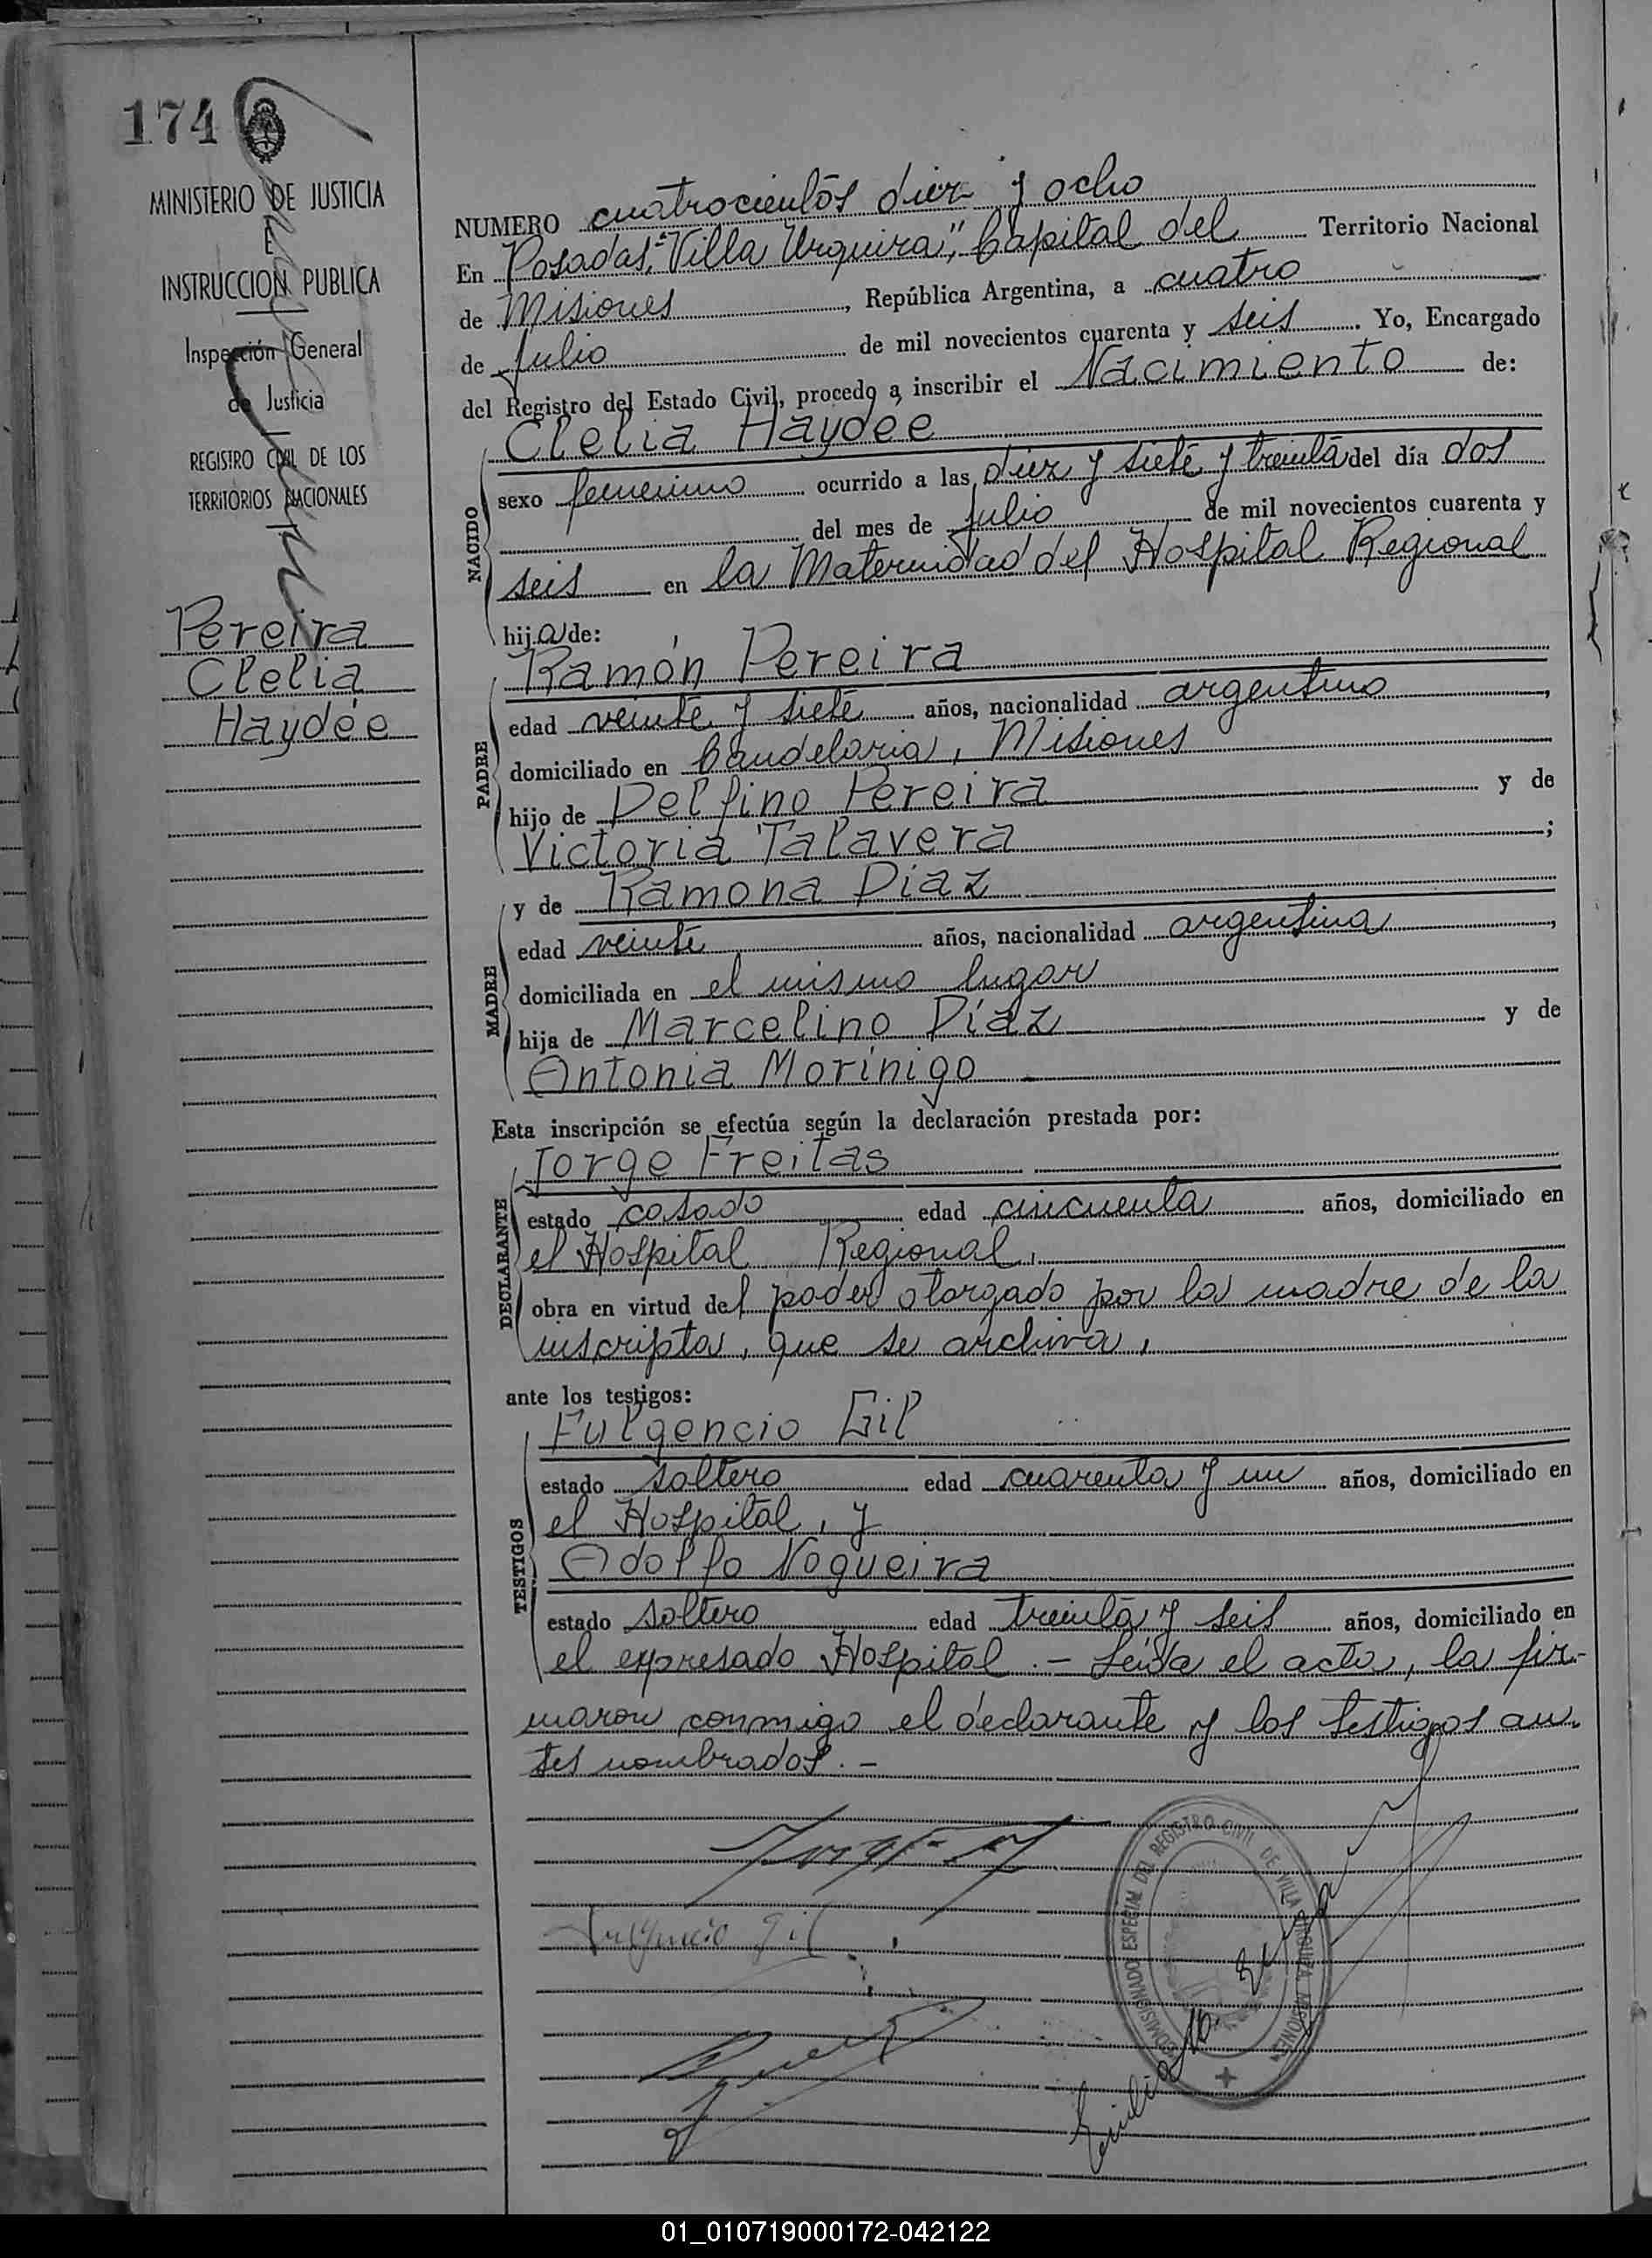 174
MINISTERIO DE JUSTICIA
E
INSTRUCCION PUBLICA
Inspección General
de Justicia
REGISTRO CIVIL DE LOS
TERRITORIOS NACIONALES
Pereira
Clelia
Haydée
NUMERO cuatrocientos diez y ocho
En Posadas, "Villa Urquiza", Capital del Territorio Nacional
de Misiones, República Argentina, a cuatro
de julio de mil novecientos cuarenta y seis. Yo, Encargado
del Registro del Estado Civil, procedo a inscribir el Nacimiento de:
Clelia Haydée
NACIDO
sexo femenino ocurrido a las diez y siete y treinta del día dos
del mes de julio de mil novecientos cuarenta y
seis en la Maternidad del Hospital Regional
hija de:
Ramón Pereira
PADRE
edad veinte y siete años, nacionalidad argentino,
domiciliado en Candelaria, Misiones
hijo de Delfino Pereira y de
Victoria Talavera;
y de Ramona Díaz
MADRE
edad veinte años, nacionalidad argentina,
domiciliada en el mismo lugar
hija de Marcelino Díaz y de
Antonia Morínigo
Esta inscripción se efectúa según la declaración prestada por:
Jorge Freitas
DECLARANTE
estado casado edad cincuenta años, domiciliado en
el Hospital Regional,
obra en virtud del poder otorgado por la madre de la
inscripta, que se archiva,
ante los testigos:
Fulgencio Gil
TESTIGOS
estado soltero edad cuarenta y un años, domiciliado en
el Hospital, y
Adolfo Nogueira
estado soltero edad treinta y seis años, domiciliado en
el expresado Hospital.- Leída el acta, la fir-
maron conmigo el declarante y los testigos an-
tes nombrados.-
Fulgencio Gil
COMISIONADO ESPECIAL DEL REGISTRO CIVIL DE VILLA URQUIZA MISIONES
01_010719000172-042122